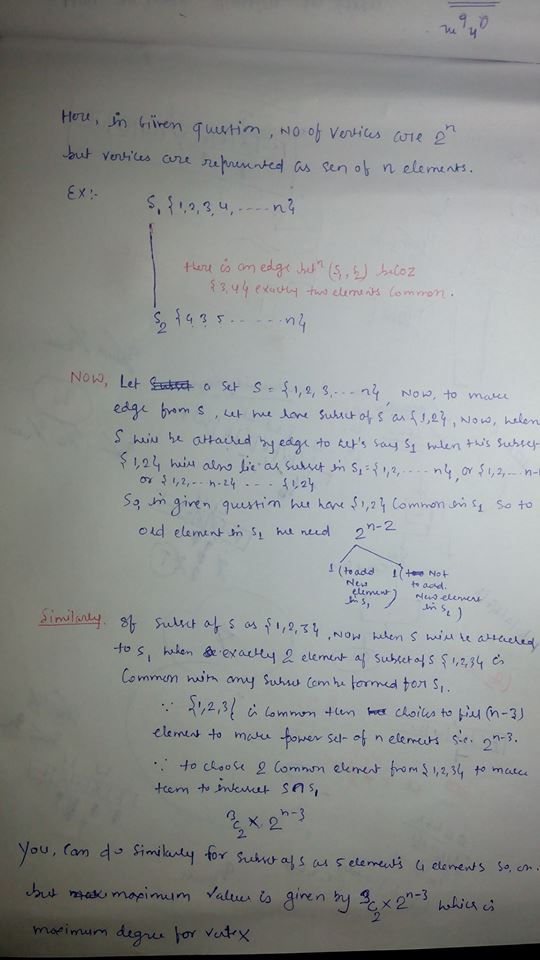 Here, in Given question, NO of vertices are 2^n
but vertices are represented as sen of n elements.
Ex:-
S1 {1,2,3,4,.....n}
there is an edge bet^n (S1, S2) becoz
{3,4} exactly two elements common.
S2 {4 3 5 ...... n}
Now, Let a set S = {1,2,3,...n}, Now, to make
edge from S, Let we have subset of S as {1,2}, Now, when
S will be attached by edge to Let's say S1 when this subset
{1,2} will also lie as subset in S1={1,2,.....n}, or {1,2,...n-1
or {1,2,...n-2} .... {1,2}
So, in given question we have {1,2} common in S1 So to
add element in S1 we need 2^n-2
1 (to add New element in S1) 1 (Not to add New element in S1)
Similarly. If subset of S as {1,2,3}, Now when S will be attached
to S1 when exactly 2 element of subset of S {1,2,3} is
Common with any subset can be formed for S1.
∵ {1,2,3} is common then choices to fill (n-3)
element to make power set of n elements i.e. 2^n-3.
∵ to choose 2 common element from {1,2,3} to make
them to intersect S∩S1
3C2 × 2^n-3
You, can do similarly for subset of S as 5 elements 4 elements so, on.
but maximum value is given by 3C2 × 2^n-3 which is
maximum degree for vertex